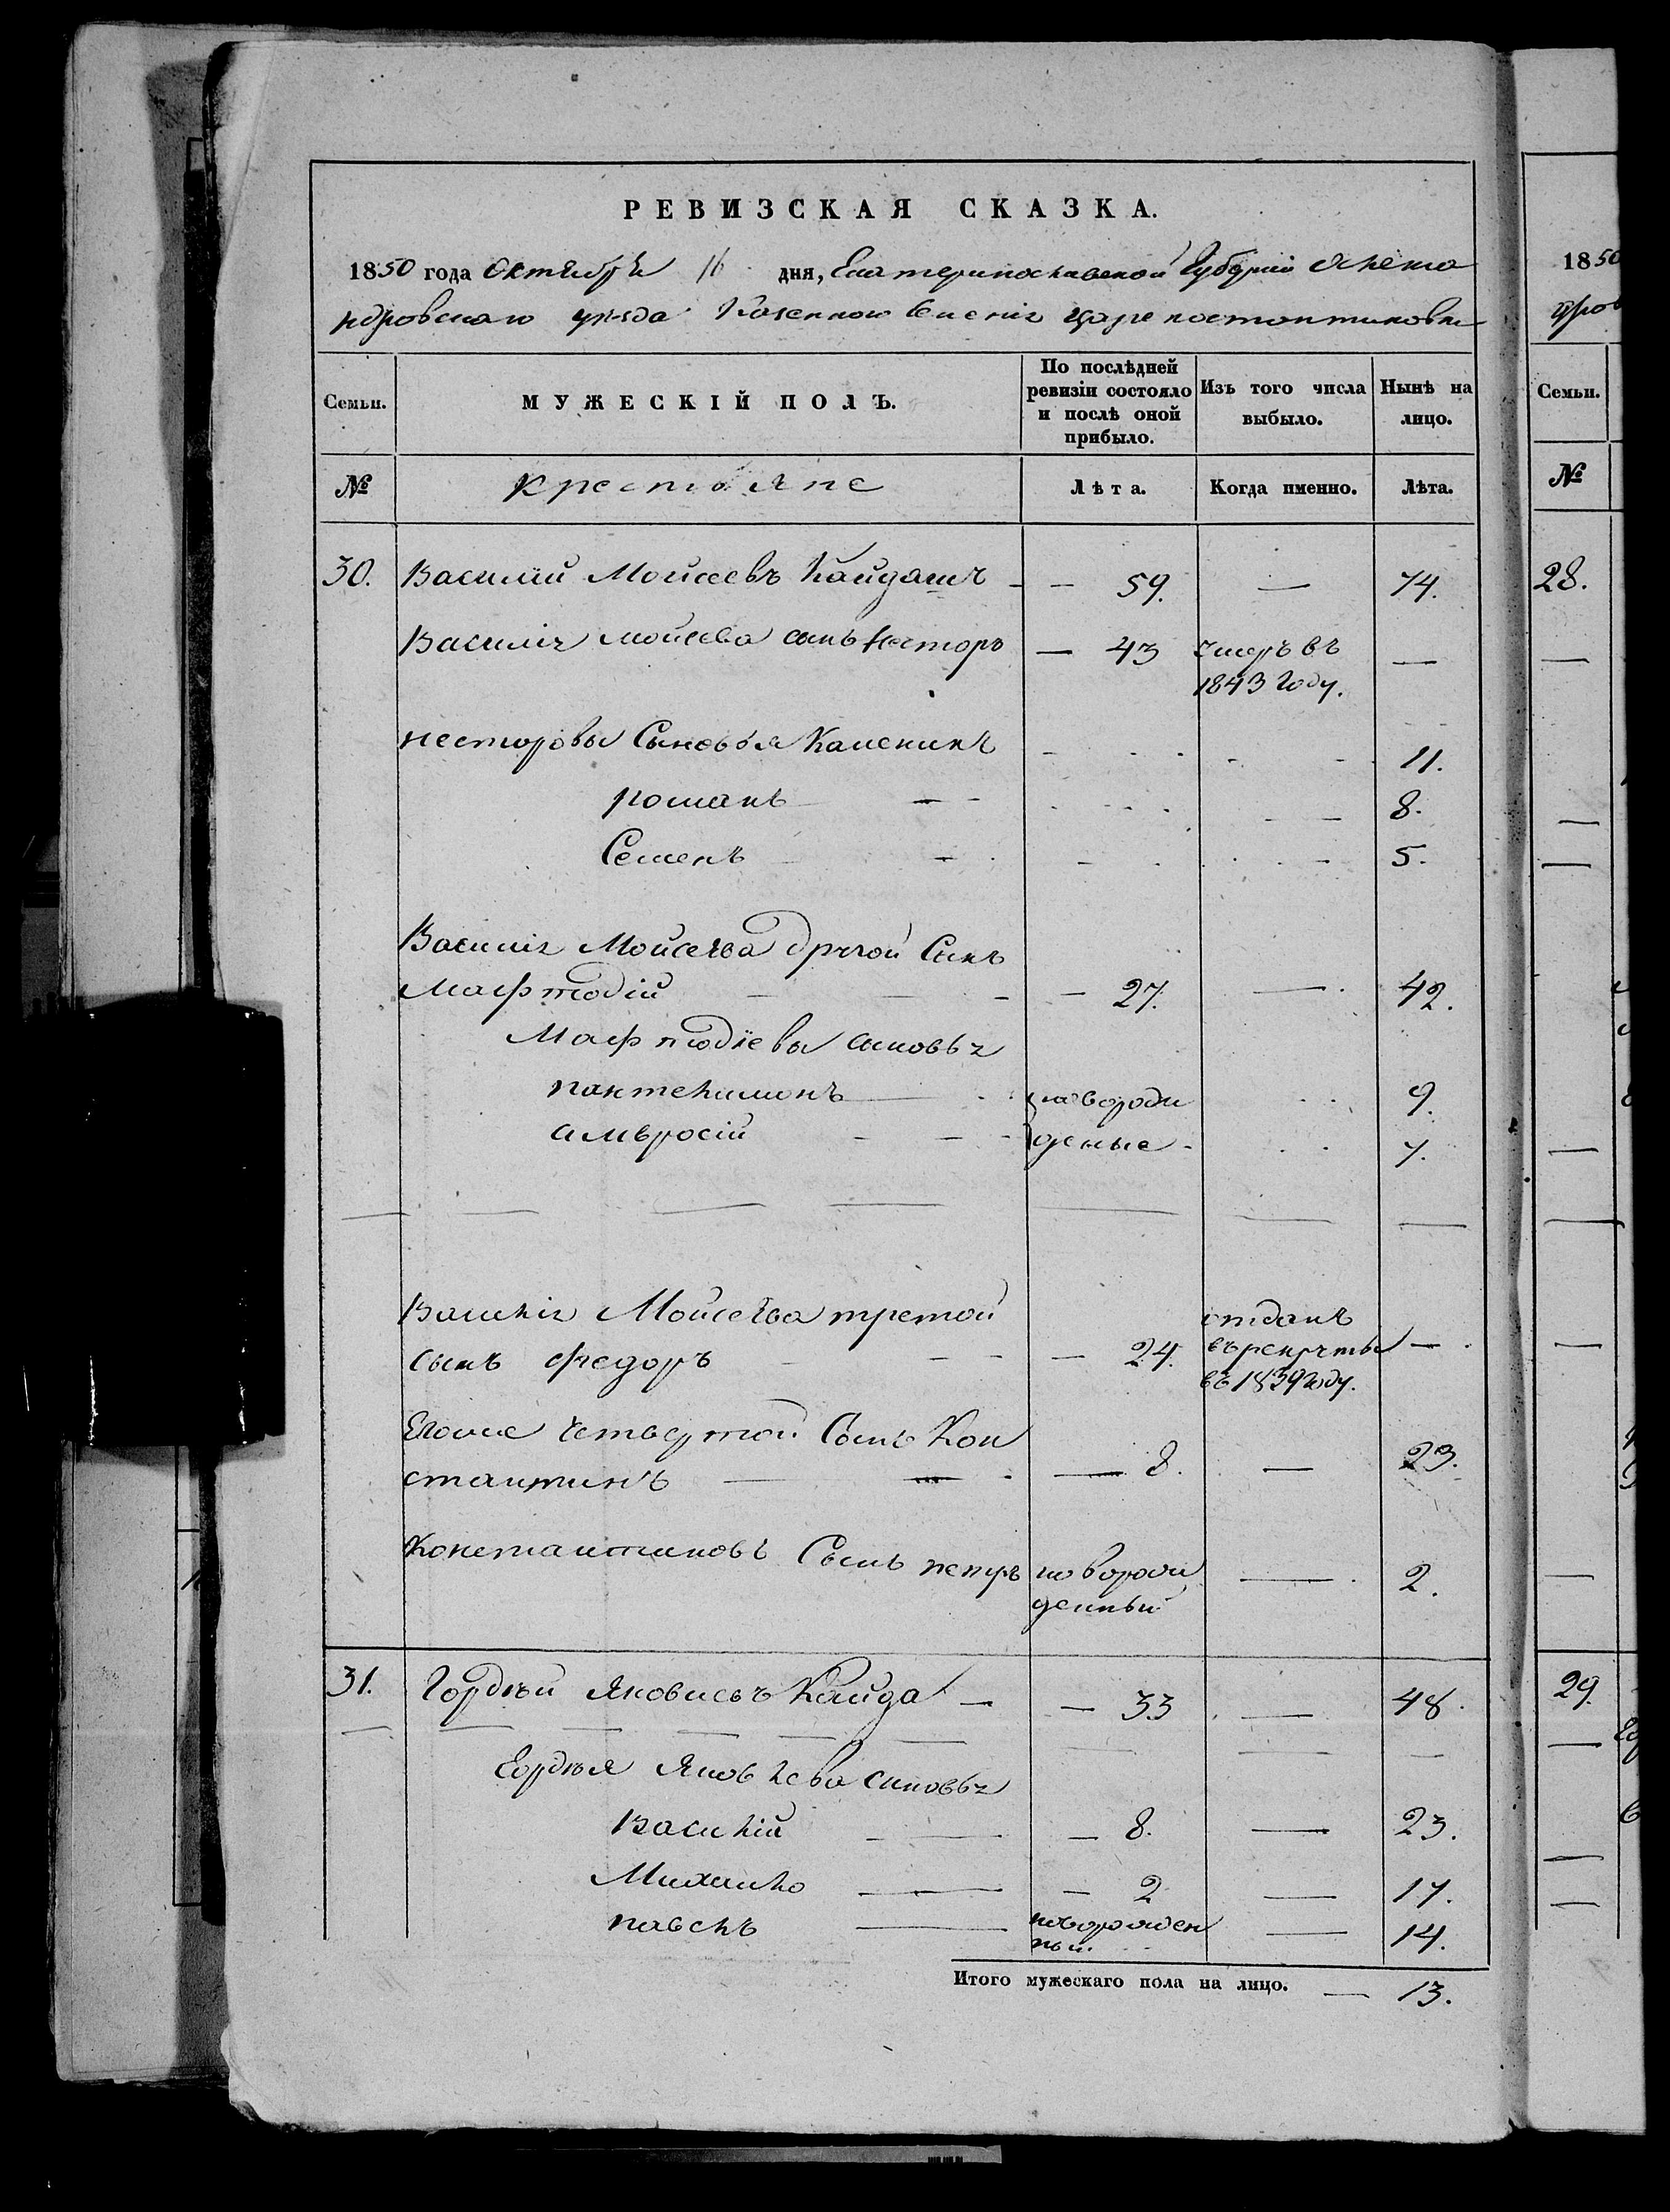 РЕВИЗСКАЯ СКАЗКА.
1850 года Октября 16 дня, Екатеринославской Губерніи Алекса
ндровскаго уезда Казенного Селенія Цареконстантиновки
Семьи. МУЖЕСКІЙ ПОЛЪ. По послѣдней ревизіи состояло и послѣ оной прибыло. Изъ того числа выбыло. Нынѣ на лицо.
№ крестьяне Лѣта. Когда именно. Лѣта.
30. Василій Мойсеевъ Кайдашъ — 59. — 74.
Василія мойсева сынъ Несторъ — 43 умеръ въ —
1843 году.
несторовы Сыновья Каленикъ 11.
романъ 8.
Семенъ 5.
Василія Мойсеева другой Сынъ
Мафтодій — 27. — 42.
Мафтодіевы сыновья
пантелимонъ новорож 9.
амвросій деные 7.
Василія Мойсеева третой отданъ
сынъ федоръ — 24. въ рекруты —
въ 1839 году.
Егоже Четвертой Сынъ Кон
стантинъ — 8. — 23.
Константиновъ Сынъ петръ новорож — 2.
денный
31. Гордѣй Яковлевъ Кайда — 33 — 48.
Гордѣя Яковлева сыновья
Василій — 8. — 23.
Михайло — 2 — 17.
павелъ новорожден — 14.
ный
Итого мужескаго пола на лицо. — 13.
1850
дров
Семьи.
№
28.
29.